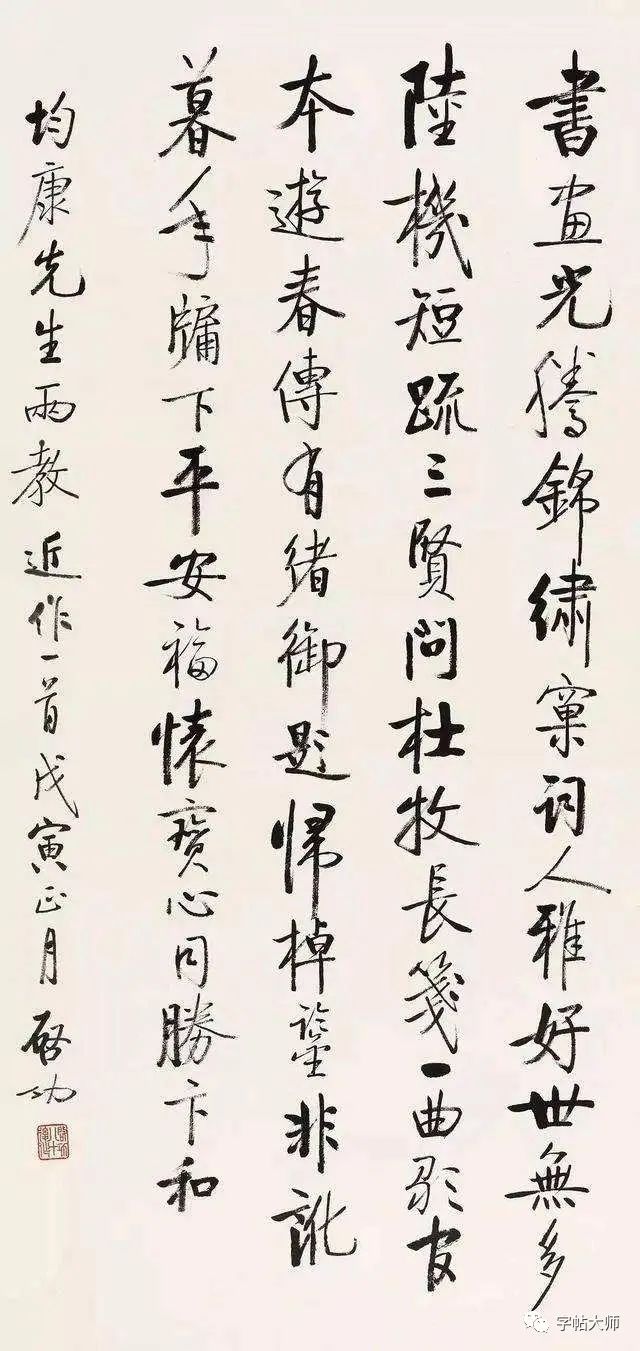 書畫光騰錦繡窠詞人雅好世無多
陸機短疏三賢問杜牧長箋一曲歌官
本遊春傳有緒御題歸棹鑒非訛
暮年牖下平安福懷寶心同勝卞和
均康先生兩教 近作一首戊寅正月 啓功
字帖大师